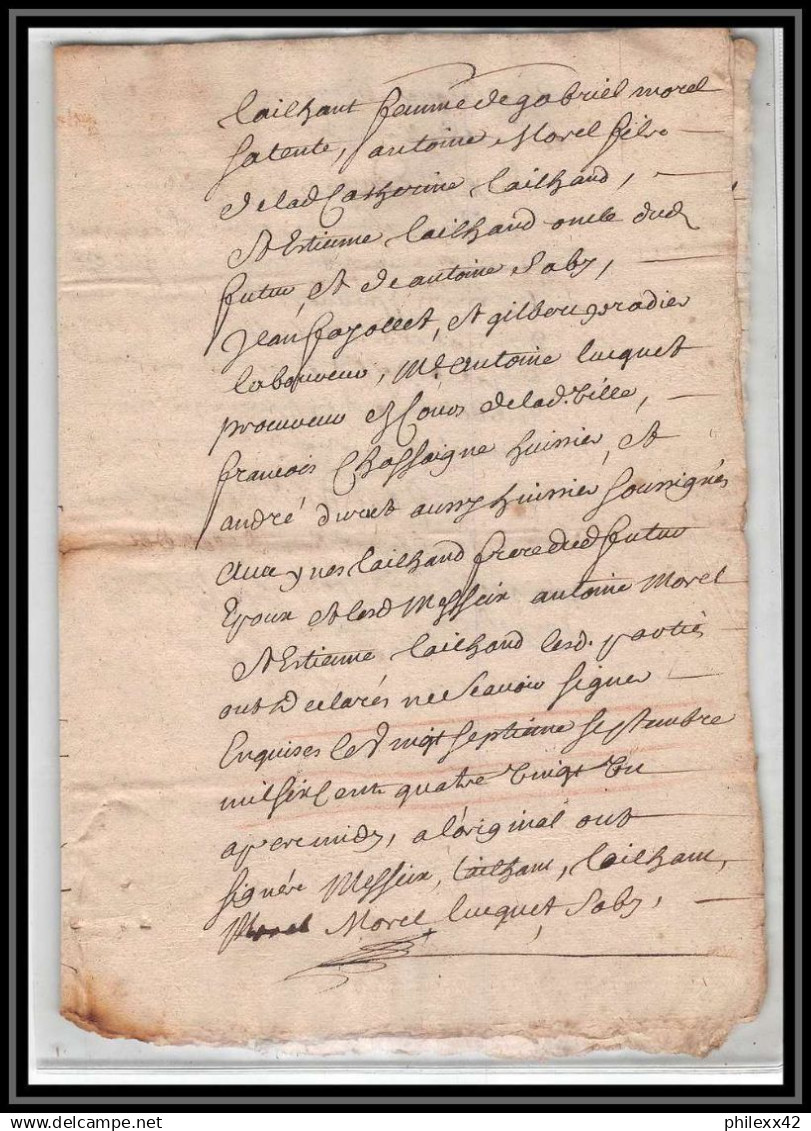 Cailhaut femme de gabriel morel
sa tente, antoine Morel fils
de lad Catherine Cailhaud,
Et Estienne Cailhaud oncle dud
futur, et de antoine Saby,
Jean fayollet, et gilbert gradier
laboureur, Me. antoine lucquet
procureur Es Cours de lad. Ville,
francois Chassaigne huissier, et
andré durect aussy huissier soussignés
avec yves Cailhaud frere dud futur
Epoux et lesd Messeix antoine Morel
Et Estienne Cailhaud lesd. parties
ont declarés ne scavoir signer
Enquises le vingt septieme septembre
mil six Cent quatre vingt un
apres midy, a l'original ont
signéz Messeix, Cailhaut, Cailhaut,
Morel Morel lucquet Saby,
philexx42